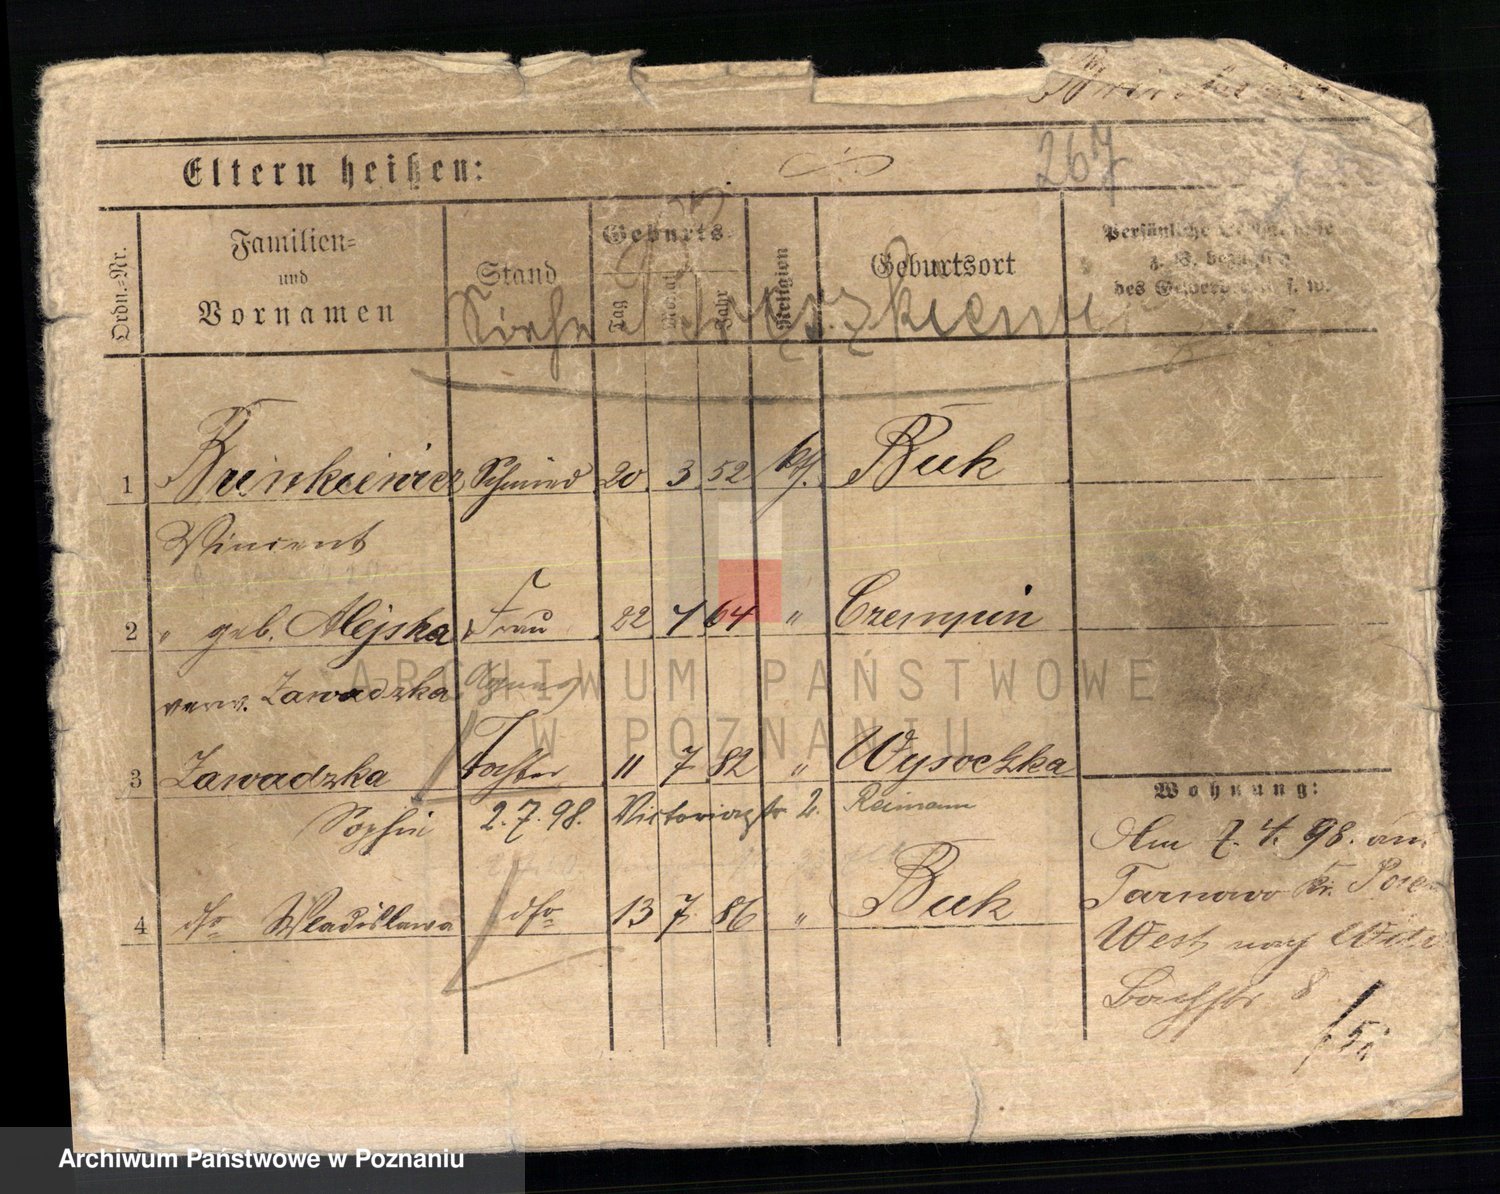 267
Eltern heißen:
Ordn.-Nr.
Familien-
und
Vornamen
Stand
Geburts-
Tag
Monat
Jahr
Religion
Geburtsort
Persönliche
z. B.
des
1 Brinkiewicz Schmied 20. 3. 52 kth. Buk
Vincent
2 " geb. Alejska Frau 22 1 64 " Czempin
verw. Zawadzka
3 Zawadzka Tochter 11 7. 82 " Wysoczka
Sophie 2.7.98. Victoriastr 2. Reimann
4 dto Wladislawa dto 13 7. 86 " Buk
Wohnung:
Am 7.4.98. aus
Tarnowo Kr. Posen
West nach
Bachstr 8
ARCHIWUM PAŃSTWOWE
W POZNANIU
Archiwum Państwowe w Poznaniu